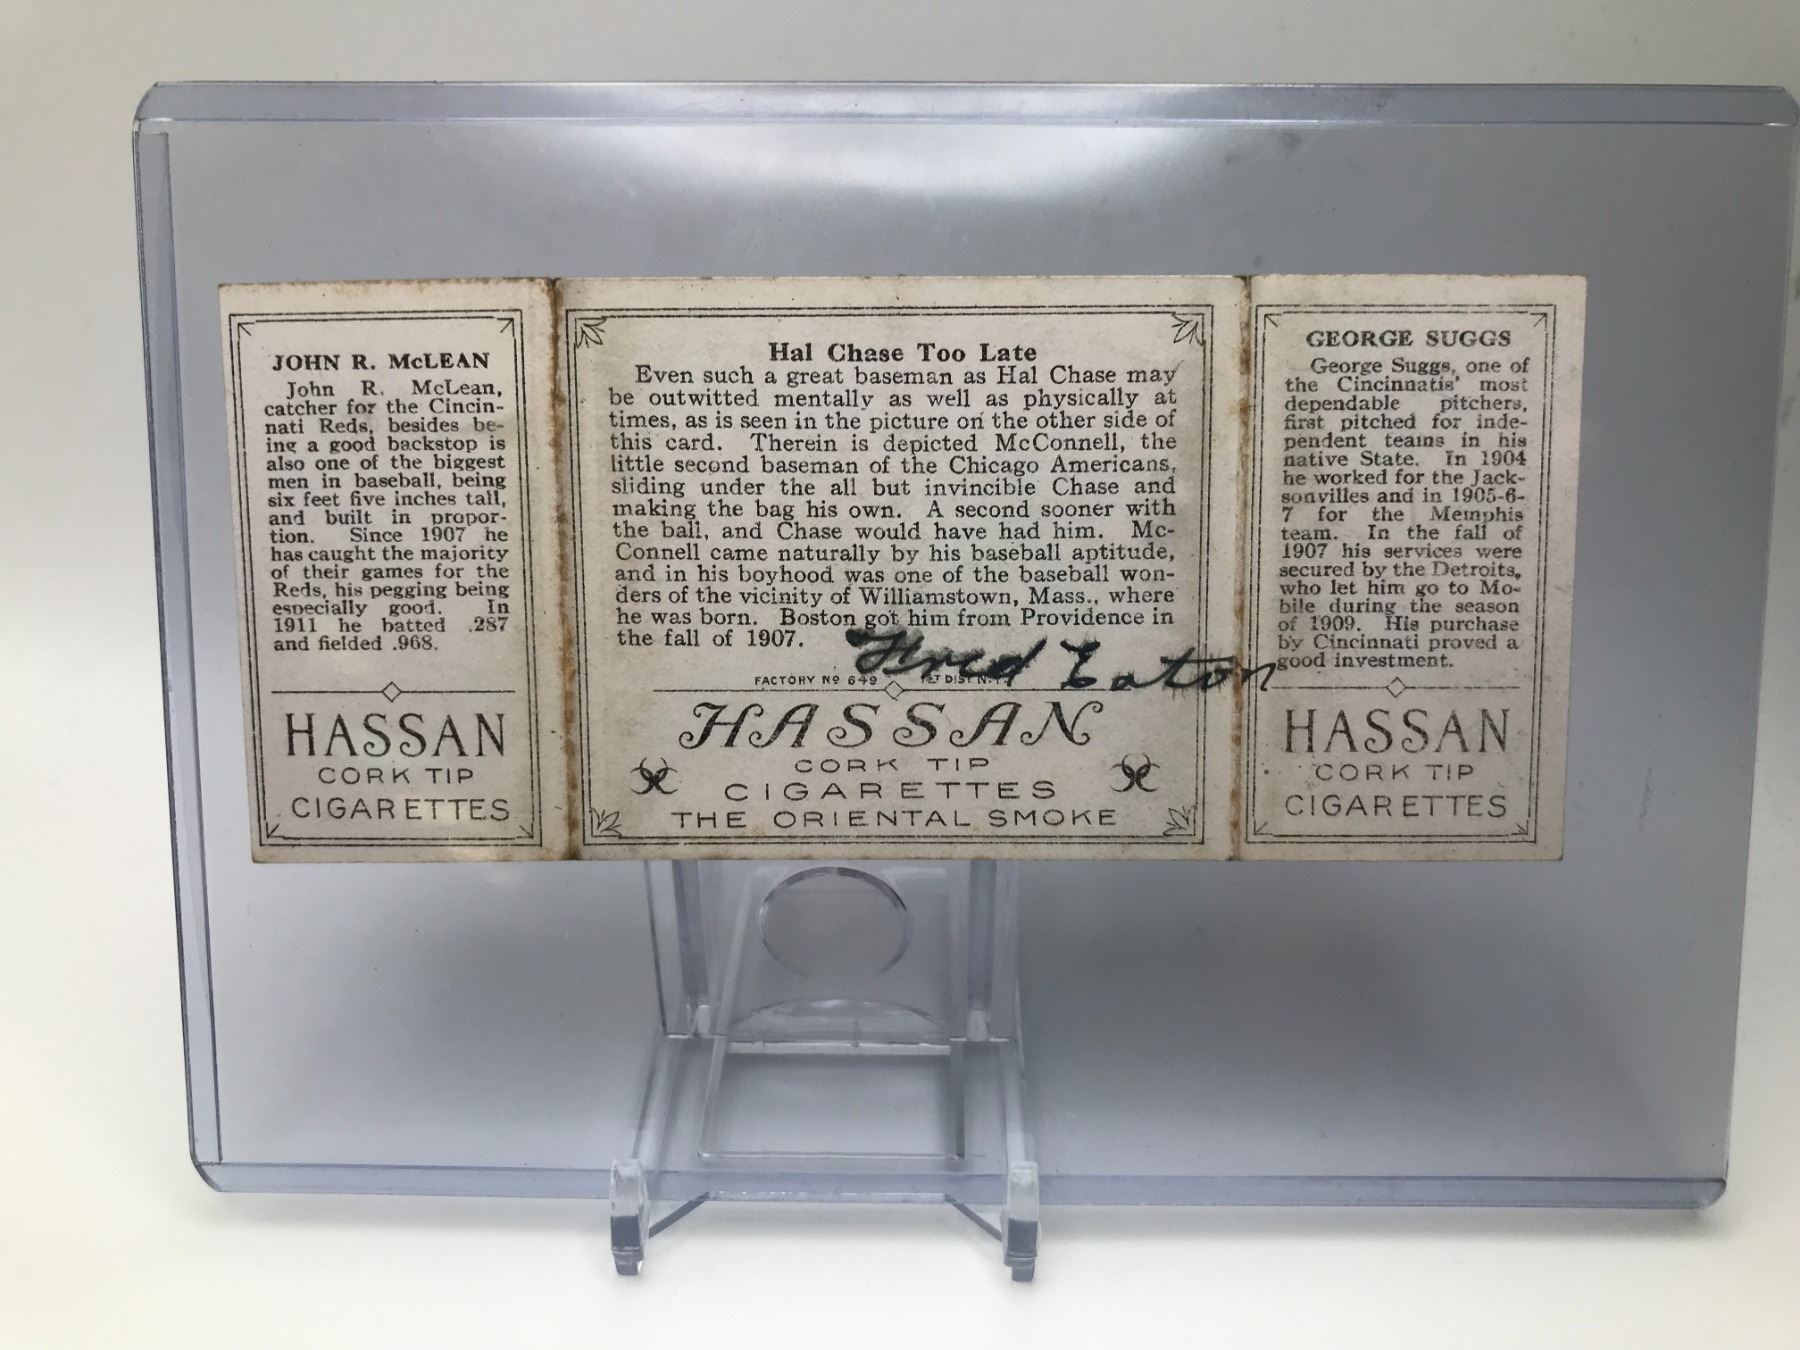 JOHN R. McLEAN
John R. McLean,
catcher for the Cincin-
nati Reds, besides be-
ing a good backstop is
also one of the biggest
men in baseball, being
six feet five inches tall,
and built in propor-
tion. Since 1907 he
has caught the majority
of their games for the
Reds, his pegging being
especially good. In
1911 he batted .287
and fielded .968.
HASSAN
CORK TIP
CIGARETTES
Hal Chase Too Late
Even such a great baseman as Hal Chase may
be outwitted mentally as well as physically at
times, as is seen in the picture on the other side of
this card. Therein is depicted McConnell, the
little second baseman of the Chicago Americans,
sliding under the all but invincible Chase and
making the bag his own. A second sooner with
the ball, and Chase would have had him. Mc-
Connell came naturally by his baseball aptitude,
and in his boyhood was one of the baseball won-
ders of the vicinity of Williamstown, Mass., where
he was born. Boston got him from Providence in
the fall of 1907.
Fred Eaton
FACTORY Nº 649 1ST DIST. N.Y.
HASSAN
CORK TIP
CIGARETTES
THE ORIENTAL SMOKE
GEORGE SUGGS
George Suggs, one of
the Cincinnatis' most
dependable pitchers,
first pitched for inde-
pendent teams in his
native State. In 1904
he worked for the Jack-
sonvilles and in 1905-6-
7 for the Memphis
team. In the fall of
1907 his services were
secured by the Detroits,
who let him go to Mo-
bile during the season
of 1909. His purchase
by Cincinnati proved a
good investment.
HASSAN
CORK TIP
CIGARETTES